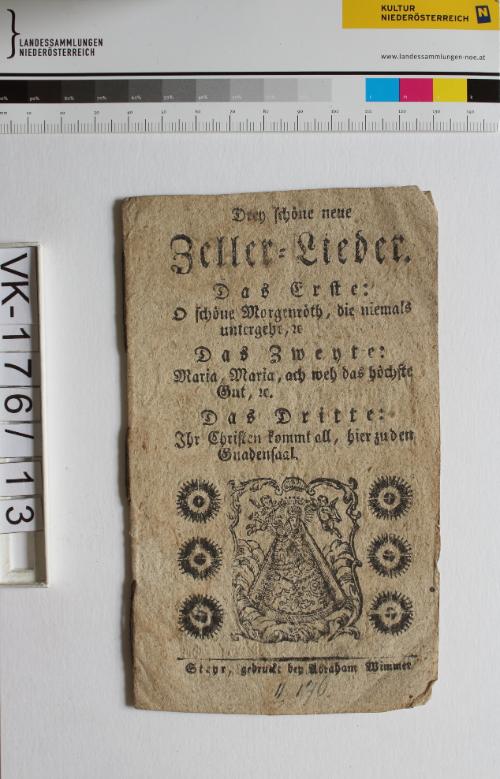 LANDESSAMMLUNGEN
NIEDERÖSTERREICH
KULTUR
NIEDERÖSTERREICH
www.landessammlungen-noe.at
VK-176/13
Drey schöne neue
Zeller=Lieder.
Das Erste:
O schöne Morgenröth, die niemals
untergeht, ꝛc
Das Zweyte:
Maria, Maria, ach weh das höchste
Gut, ꝛc.
Das Dritte:
Ihr Christen kommt all, hier zu den
Gnadensaal.
Steyr, gedruckt bey Abraham Wimmer